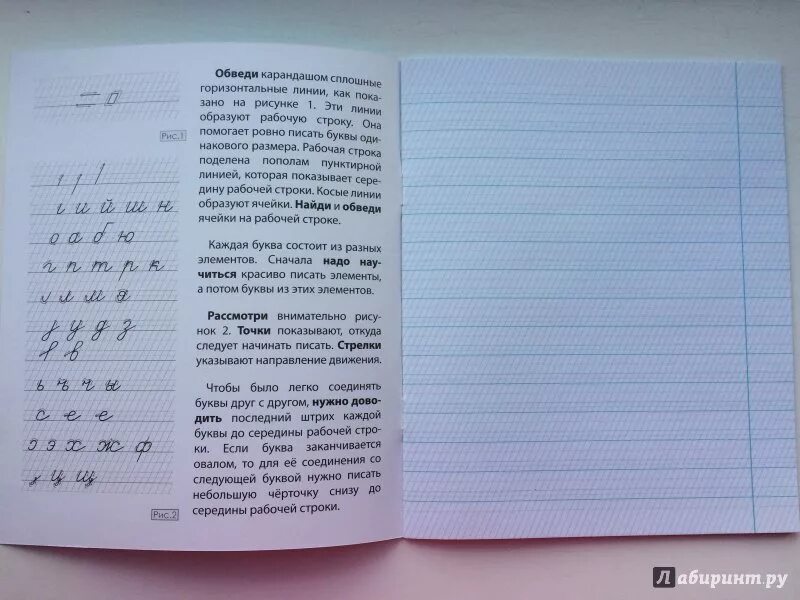 Рис.1
ι и й ш н
о а б ю
г п т р к
л м я
у д з
в
ь ъ ч ы
с е ё
э э х ж ф
ц щ
Рис.2
Обведи карандашом сплошные
горизонтальные линии, как пока-
зано на рисунке 1. Эти линии
образуют рабочую строку. Она
помогает ровно писать буквы оди-
накового размера. Рабочая строка
поделена пополам пунктирной
линией, которая показывает сере-
дину рабочей строки. Косые линии
образуют ячейки. Найди и обведи
ячейки на рабочей строке.
Каждая буква состоит из разных
элементов. Сначала надо нау-
читься красиво писать элементы,
а потом буквы из этих элементов.
Рассмотри внимательно рису-
нок 2. Точки показывают, откуда
следует начинать писать. Стрелки
указывают направление движения.
Чтобы было легко соединять
буквы друг с другом, нужно дово-
дить последний штрих каждой
буквы до середины рабочей стро-
ки. Если буква заканчивается
овалом, то для её соединения со
следующей буквой нужно писать
небольшую чёрточку снизу до
середины рабочей строки.
Лабиринт.ру